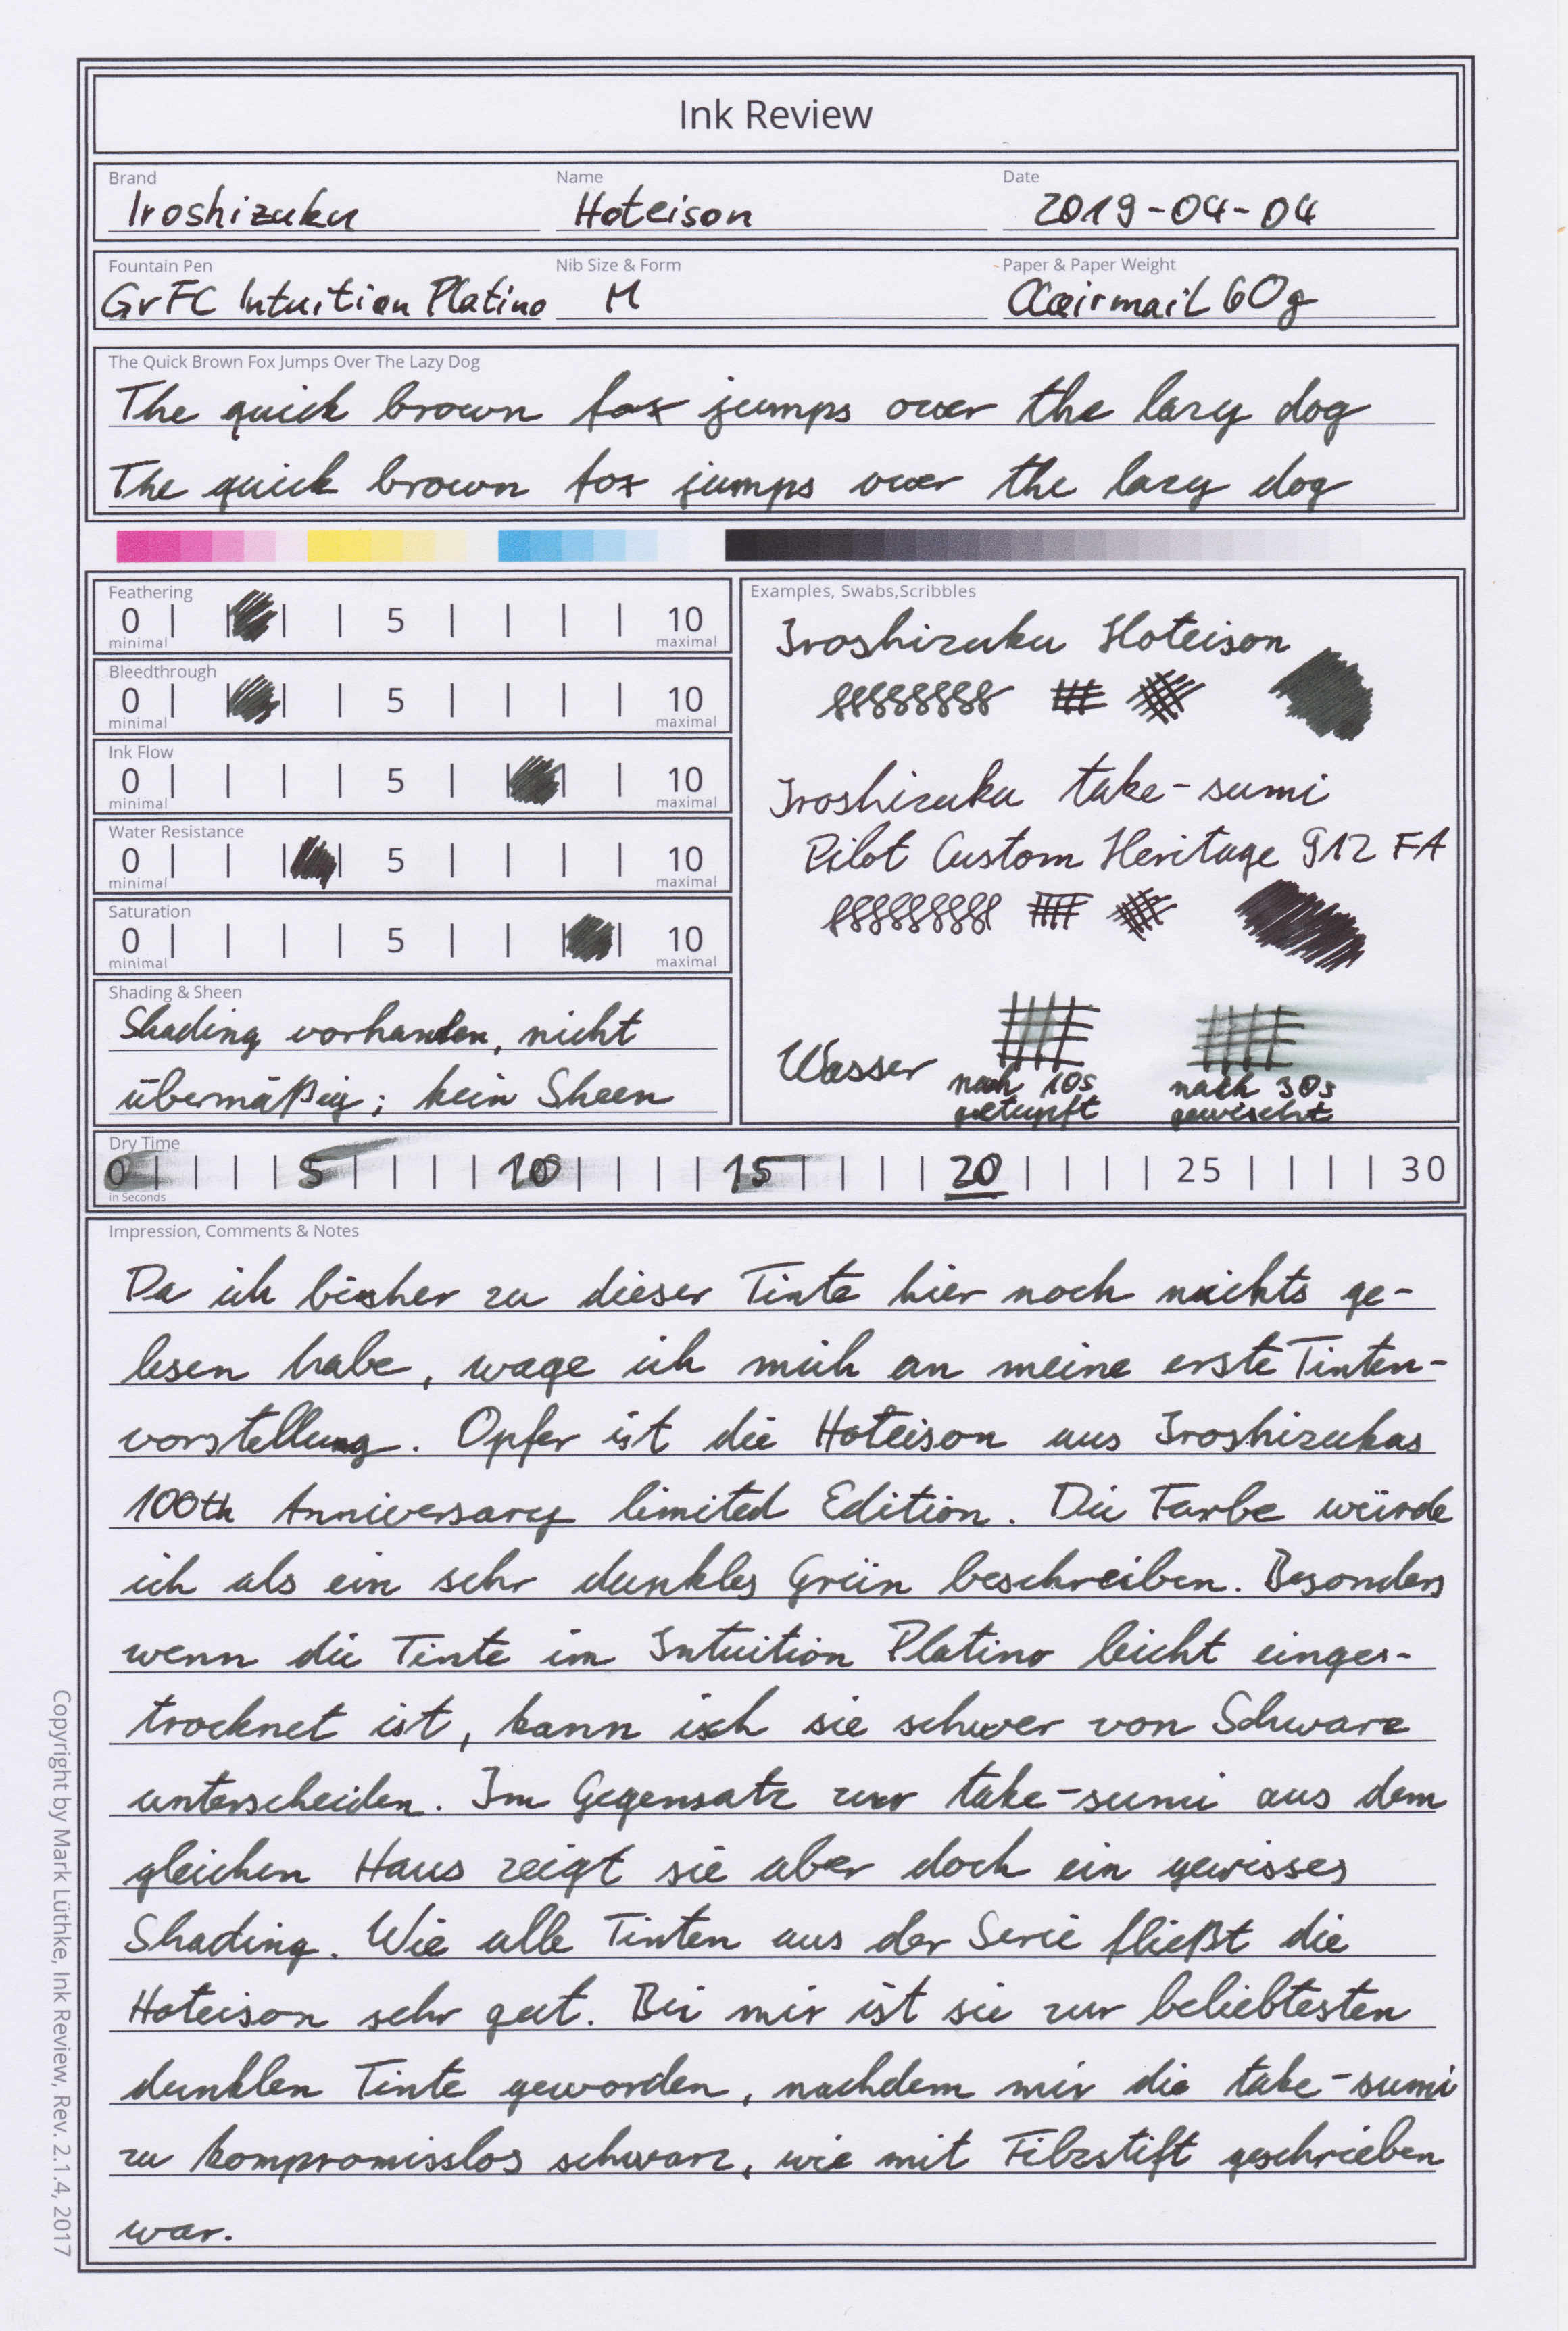 Ink Review
Brand Name Date
Iroshizuku Hoteison 2019-04-04
Fountain Pen Nib Size & Form Paper & Paper Weight
GvFC Intuition Platino M 60g
The Quick Brown Fox Jumps Over The Lazy Dog
The quick brown fox jumps over the lazy dog
The quick brown fox jumps over the lazy dog
Feathering
0 5 10
minimal maximal
Bleedthrough
0 5 10
minimal maximal
Ink Flow
0 5 10
minimal maximal
Water Resistance
0 5 10
minimal maximal
Saturation
0 5 10
minimal maximal
Shading & Sheen
Shading vorhanden, nicht
übermäßig; kein Sheen
Examples, Swabs,Scribbles
Iroshizuku Hoteison
Iroshizuku take-sumi
Pilot Custom Heritage 912 FA
Wasser
nach 10s
getupft
nach 30s
gewischt
Dry Time
0 5 10 15 20 25 30
in Seconds
Impression, Comments & Notes
Da ich bisher zu dieser Tinte hier noch nichts ge-
lesen habe, wage ich mich an meine erste Tinten-
vorstellung. Opfer ist die Hoteison aus Iroshizukas
100th Anniversary limited Edition. Die Farbe würde
ich als ein sehr dunkles Grün beschreiben. Besonders
wenn die Tinte im Intuition Platino leicht einge-
trocknet ist, kann ich sie schwer von Schwarz
unterscheiden. Im Gegensatz zur take-sumi aus dem
gleichen Haus zeigt sie aber doch ein gewisses
Shading. Wie alle Tinten aus der Serie fließt die
Hoteison sehr gut. Bei mir ist sie zur beliebtesten
dunklen Tinte geworden, nachdem mir die take-sumi
zu kompromisslos schwarz, wie mit Filzstift geschrieben
war.
Copyright by Mark Lüthke, Ink Review, Rev. 2.1.4, 2017